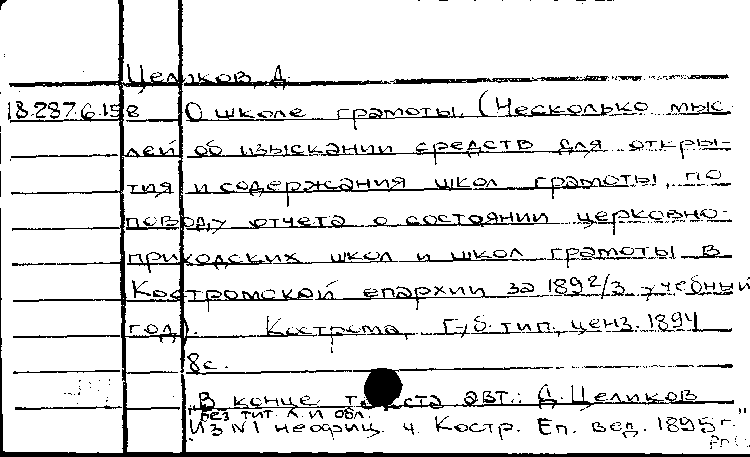 Целиков, Д.
18.287.6.158 О школе грамоты. (Несколько мыс
лей об изыскании средств для откры-
тия и содержания школ грамоты, по
поводу отчета о состоянии церковно-
приходских школ и школ грамоты в
Костромской епархии за 1892/3 учебный
год). Кострома, Губ. тип., ценз. 1894
8с.
"В конце текста авт.: Д. Целиков
Без тит. л. и обл.
Из №1 неофиц. ч. Костр. Еп. вед. 1895 г."